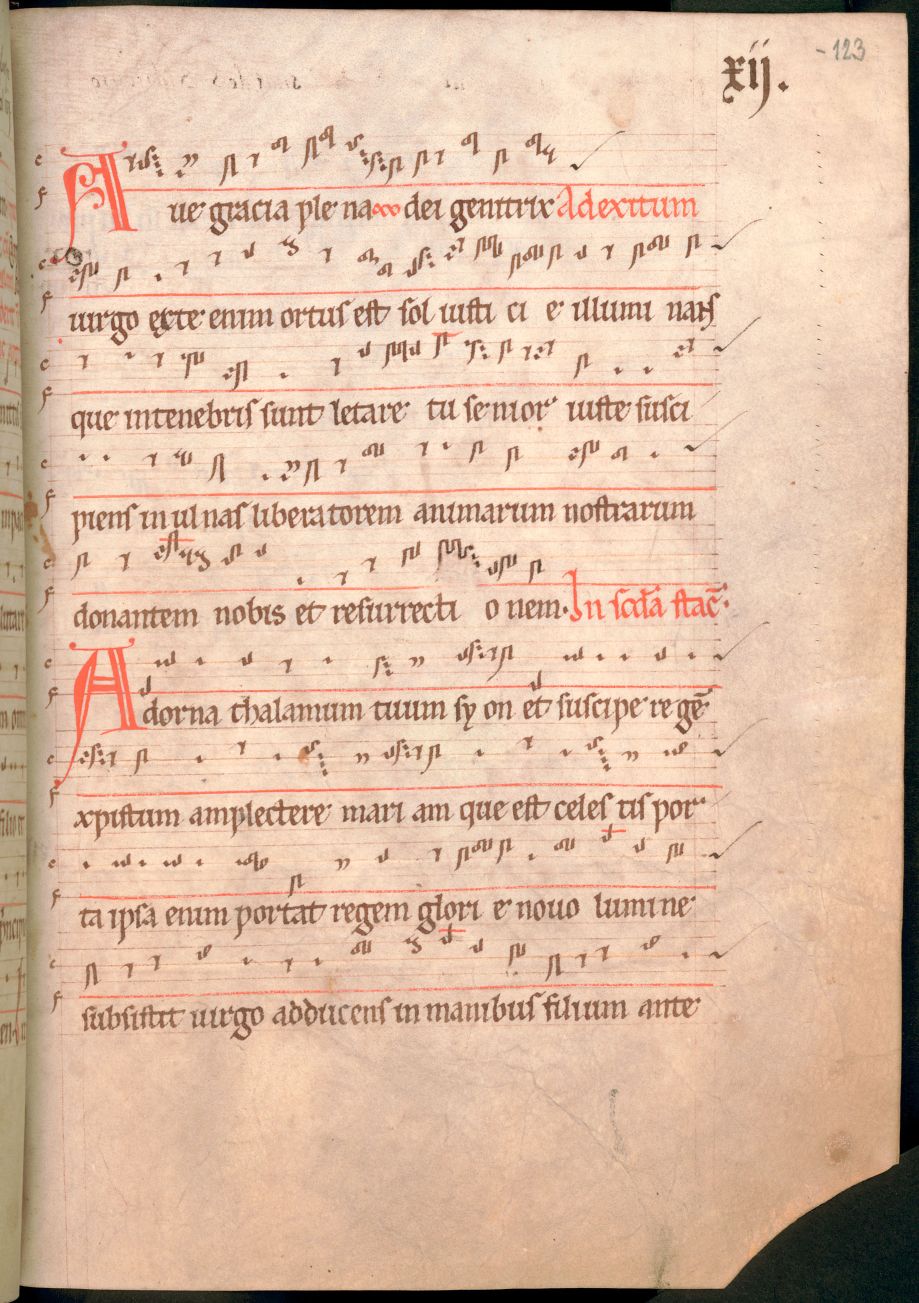 xij.
123
Aue gracia plena dei genitrix Ad exitum
uirgo ex te enim ortus est sol iusticie illuminans
que in tenebris sunt letare tu senior iuste susci
piens in ulnas liberatorem animarum nostrarum
donantem nobis et resurrectionem. In scđa stac̄.
Adorna thalamum tuum syon et suscipe regē
xpistum amplectere mariam que est celestis por
ta ipsa enim portat regem glorie nouo lumine
subsistit uirgo adducens in manibus filium ante